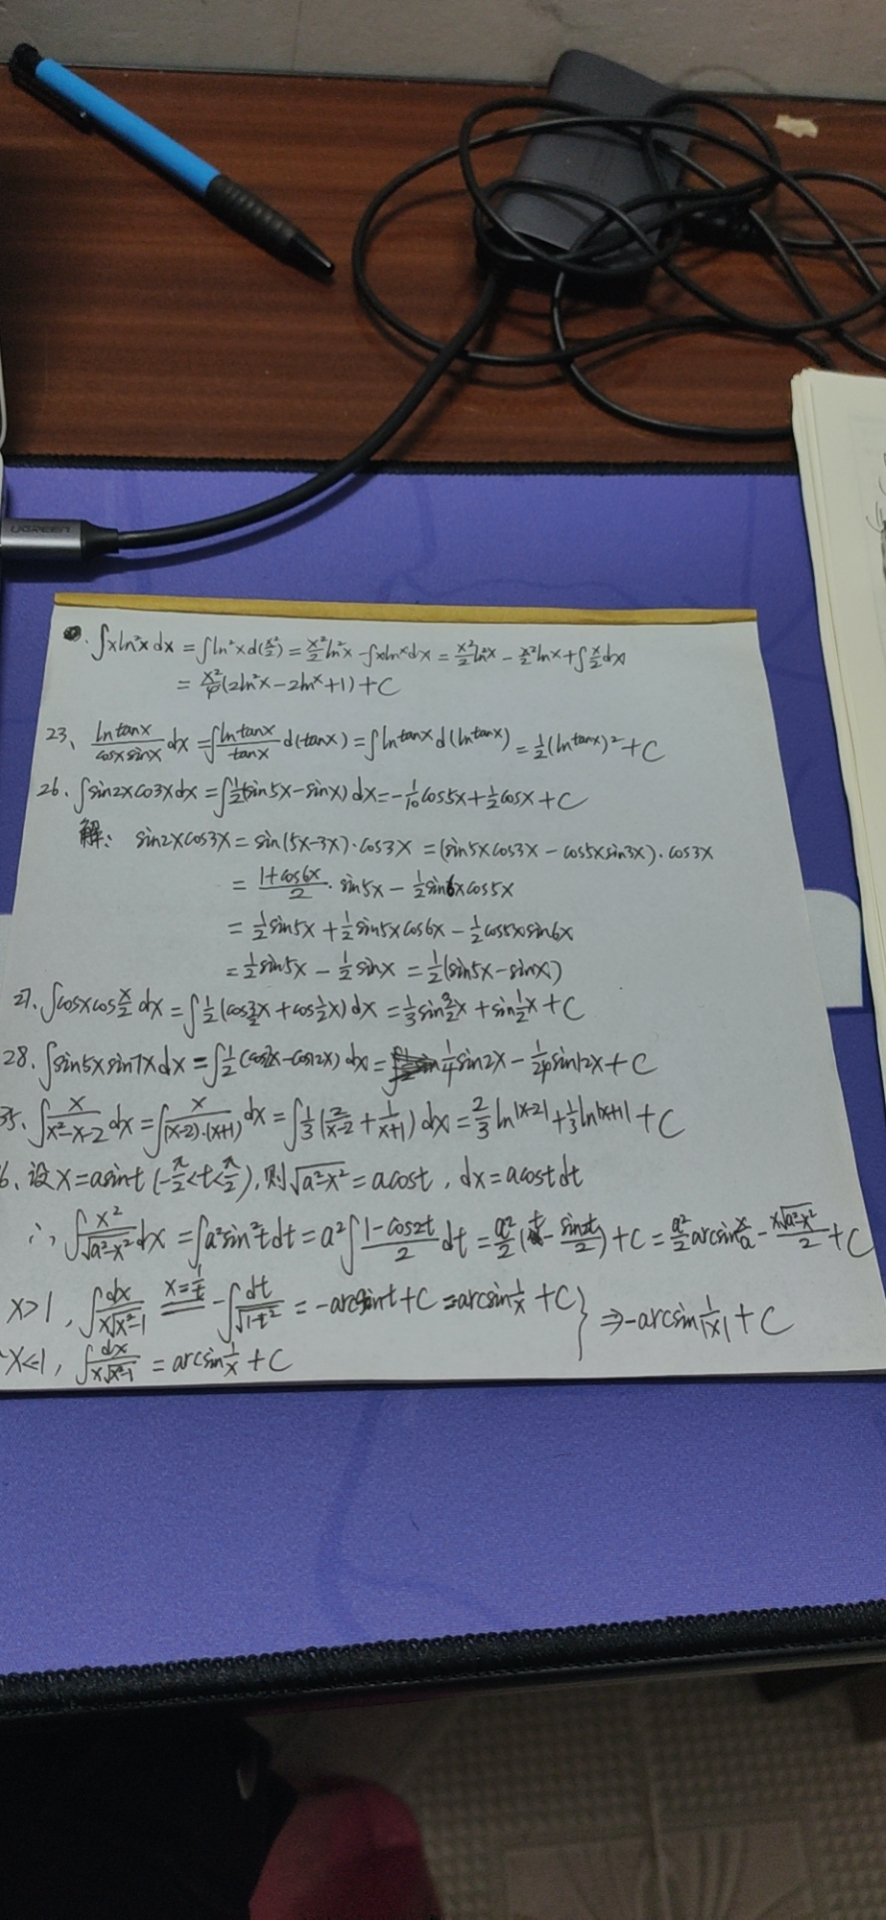 UGREEN
∫xln²xdx = ∫ln²xd(x²/2) = x²/2 ln²x - ∫xlnxdx = x²/2 ln²x - x²/2 lnx + ∫x/2 dx
= x²/4 (2ln²x - 2lnx + 1) + C
23、 lntanx/cosxsinx dx = ∫lntanx/tanx d(tanx) = ∫lntanx d(lntanx) = 1/2(lntanx)² + C
26、∫sin2xco3xdx = ∫1/2(sin5x-sinx) dx = -1/10 cos5x + 1/2 cosx + C
解: sin2xcos3x = sin(5x-3x)·cos3x = (sin5xcos3x - cos5xsin3x)·cos3x
= 1+cos6x/2 · sin5x - 1/2 sin6xcos5x
= 1/2 sin5x + 1/2 sin5xcos6x - 1/2 cos5xsin6x
= 1/2 sin5x - 1/2 sinx = 1/2(sin5x-sinx)
27、∫cosxcos x/2 dx = ∫1/2(cos3/2x + cos1/2x) dx = 1/3 sin3/2x + sin1/2x + C
28、∫sin5xsin7xdx = ∫1/2(cos2x-cos12x) dx = 1/4 sin2x - 1/24 sin12x + C
35、∫x/x²-x-2 dx = ∫x/(x-2)·(x+1) dx = ∫1/3(2/x-2 + 1/x+1) dx = 2/3 ln|x-2| + 1/3 ln|x+1| + C
6、设x=asint (-π/2<t<π/2), 则√a²-x² = acost, dx=acostdt
∴∫x²/√a²-x² dx = ∫a²sin²tdt = a²∫1-cos2t/2 dt = a²/2 (t - sin2t/2) + C = a²/2 arcsin x/a - x√a²-x²/2 + C
x>1, ∫dx/x√x²-1 x=1/t -∫dt/√1-t² = -arcsint + C = -arcsin1/x + C} ⇒ -arcsin1/|x| + C
x<-1, ∫dx/x√x²-1 = arcsin1/x + C